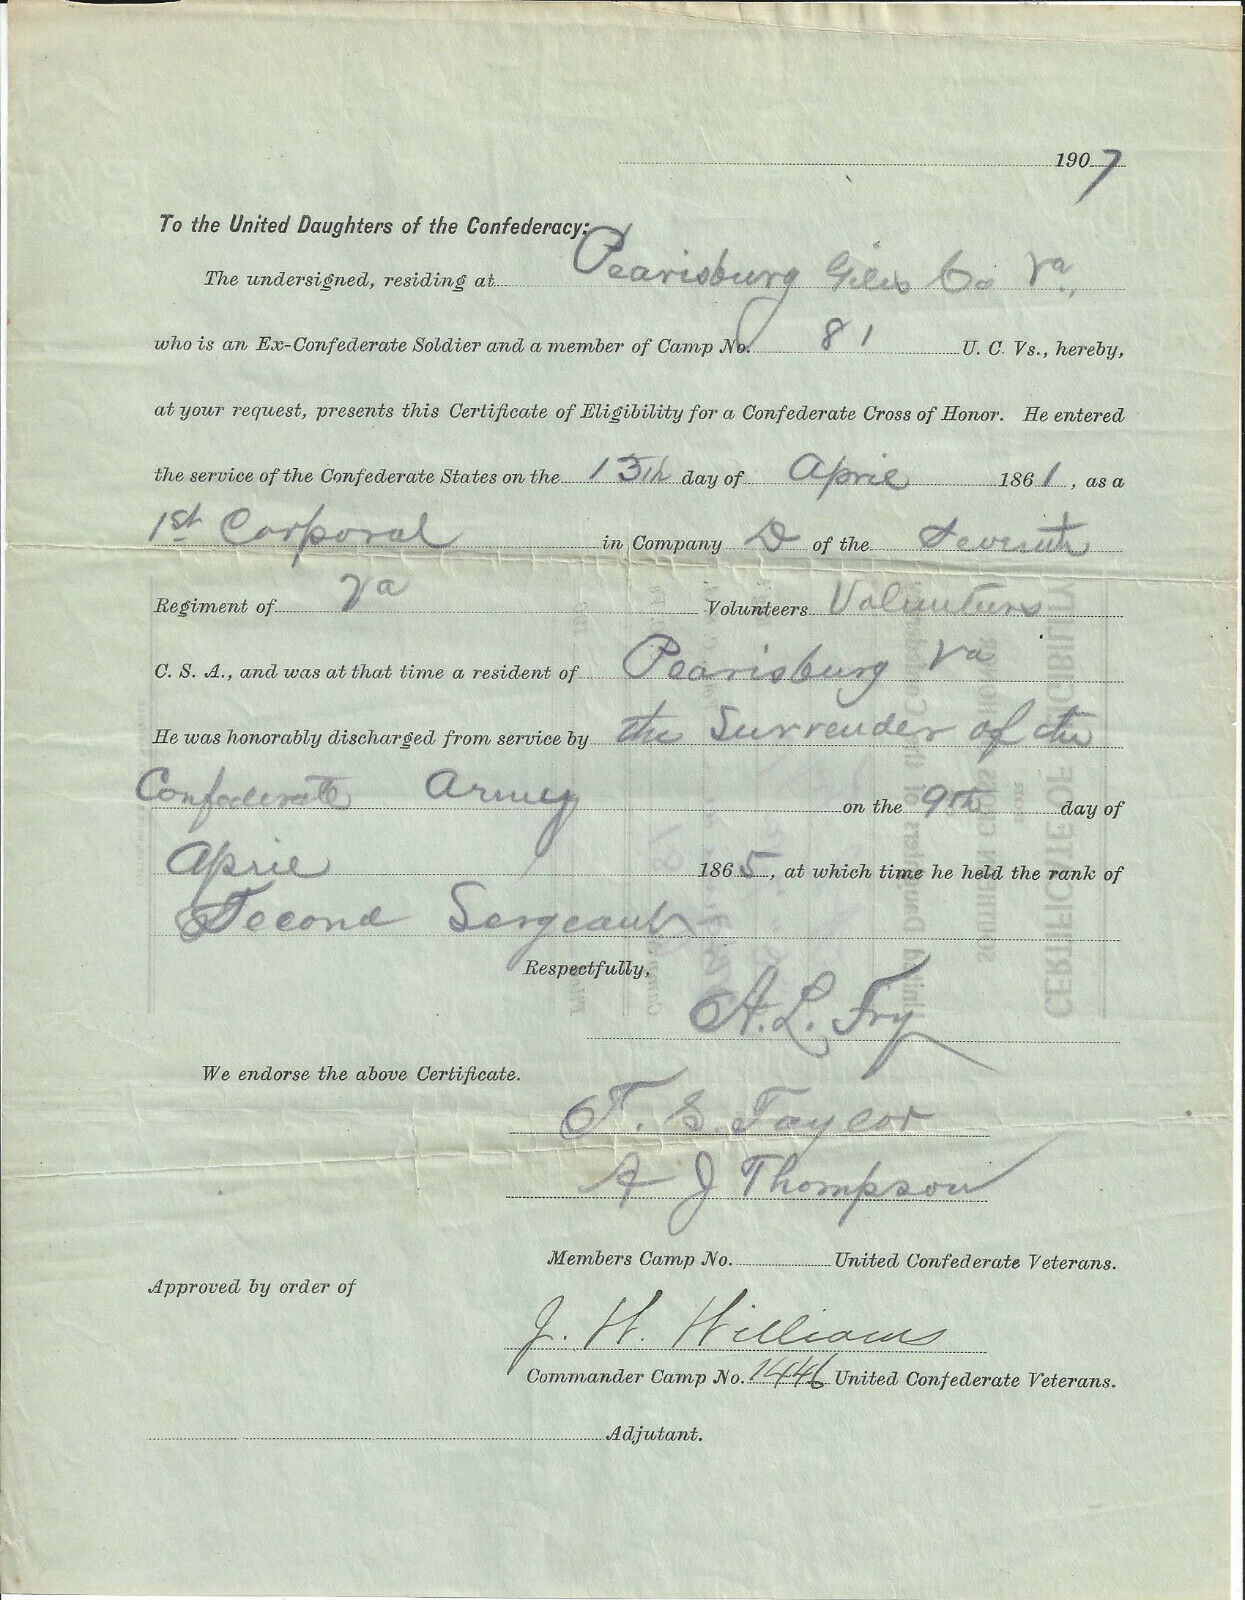 1907
To the United Daughters of the Confederacy:
The undersigned, residing at Pearisburg Giles Co Va,
who is an Ex-Confederate Soldier and a member of Camp No. 81 U. C. Vs., hereby,
at your request, presents this Certificate of Eligibility for a Confederate Cross of Honor. He entered
the service of the Confederate States on the 13th day of April 1861, as a
1st Corporal in Company D of the Seventh
Regiment of Va Volunteers Volunteers
C. S. A., and was at that time a resident of Pearisburg Va
He was honorably discharged from service by the Surrender of the
Confederate Army on the 9th day of
April 1865, at which time he held the rank of
Second Sergeant
Respectfully,
A. L. Fry
We endorse the above Certificate.
F. G. Taylor
A J Thompson
Members Camp No. United Confederate Veterans.
Approved by order of
J. H. Williams
Commander Camp No. 1446 United Confederate Veterans.
Adjutant.